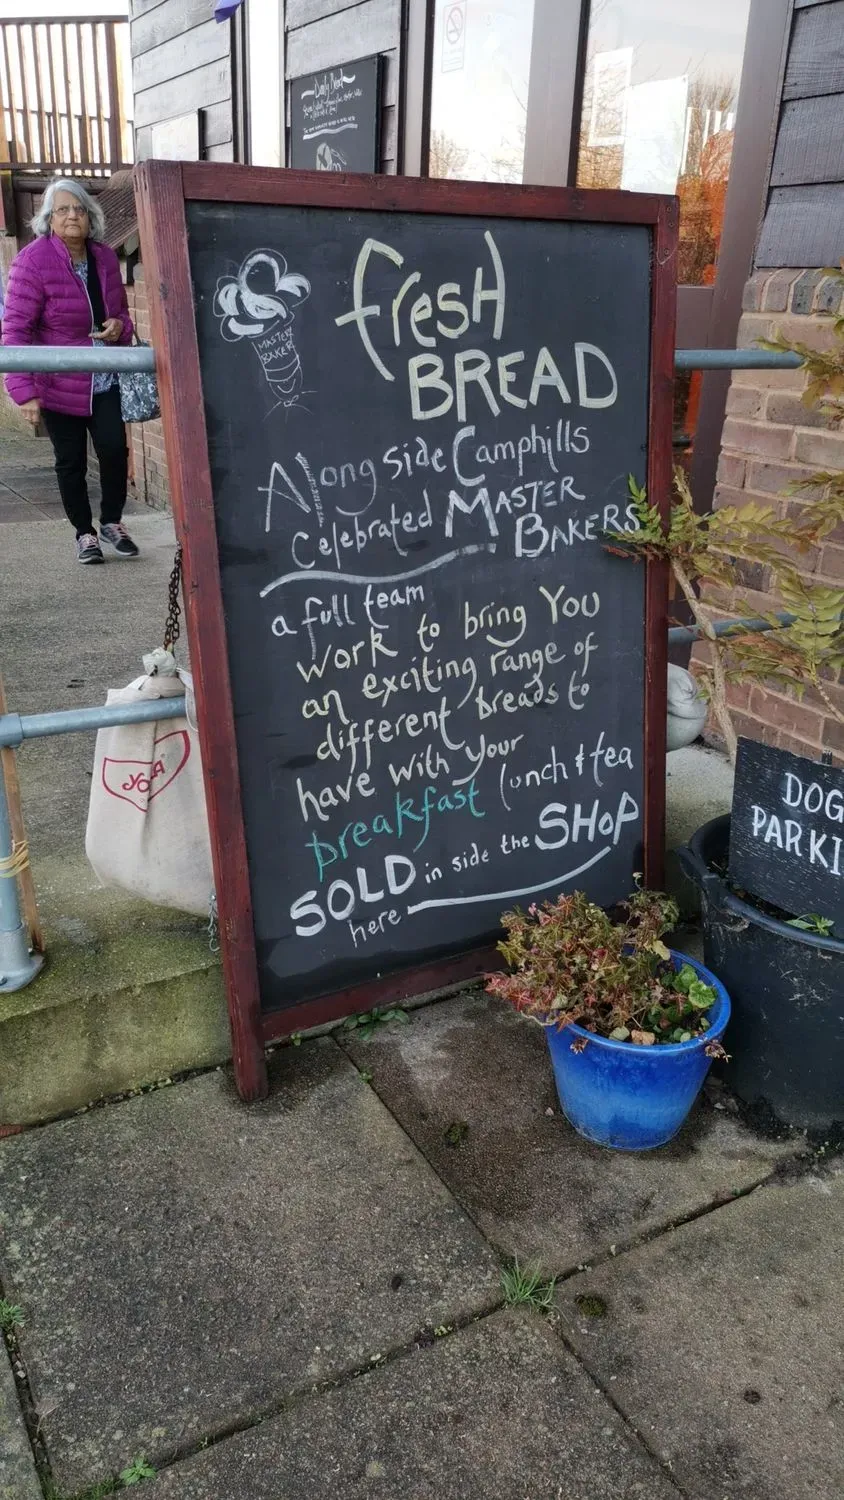 Daily Bread
fresh
BREAD
MASTER
BAKER
Along side Camphills
Celebrated MASTER
BAKERS
a full team
work to bring You
an exciting range of
different breads to
have with your
breakfast lunch & tea
SOLD in side the SHOP
here
YOKA
DOG
PARKI